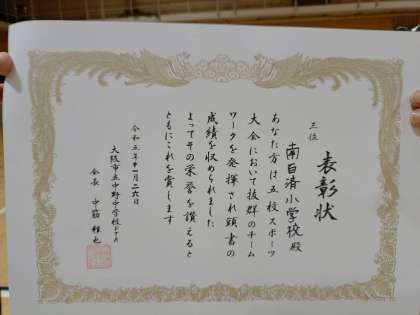 表彰状
三位
南百済小学校殿
あなた方は五校スポーツ
大会において抜群のチーム
ワークを発揮され頭書の
成績を収められました
よってその栄誉を讃えると
ともにこれを賞します
令和五年十一月二六日
大阪市立中野中学校PTA
会長 中筋 雅也